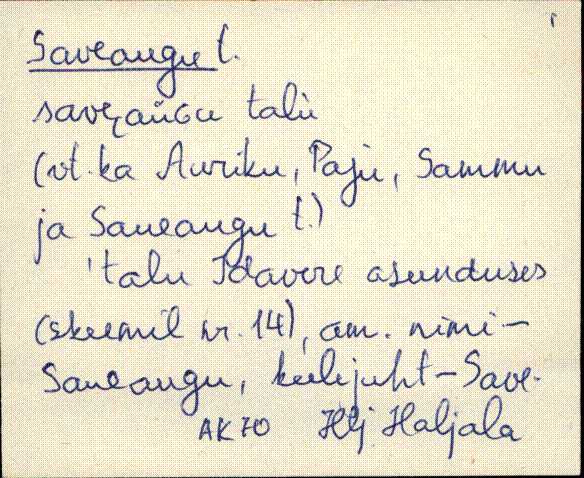 Saveaugu t.
save̬auGu talù
(vt. ka Auriku, Paju, Sammu
ja Saueaugu t.)
'talu Idavere asunduses
(skeemil nr. 14), am. nimi –
Saueaugu, keelejuht – Save-
AK 70 Hlj Haljala